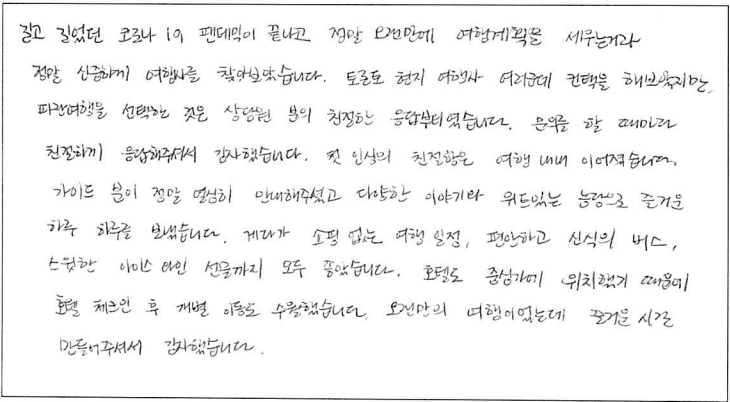 길고 길었던 코로나 19 팬데믹이 끝나고 정말 오랜만에 여행계획을 세우는거라
정말 신중하게 여행사를 찾아보았습니다. 토론토 현지 여행사 여러군데 컨택을 해보았지만,
파란여행을 선택한 것은 상담원 분의 친절한 응답부터였습니다. 문의를 할 때마다
친절하게 응답해주셔서 감사했습니다. 첫 인상의 친절함은 여행 내내 이어졌습니다.
가이드 분이 정말 열심히 안내해주셨고 다양한 이야기와 위트있는 농담으로 즐거운
하루 하루를 보냈습니다. 게다가 쇼핑 없는 여행 일정, 편안하고 신식의 버스,
스윗한 아이스 와인 선물까지 모두 좋았습니다. 호텔도 중심가에 위치했기 때문에
호텔 체크인 후 개별 이동도 수월했습니다. 오랜만의 여행이었는데 즐거운 시간
만들어주셔서 감사했습니다.